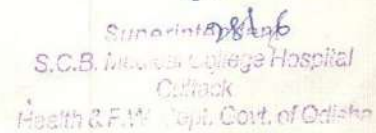 Superintendent
S.C.B. Medical College Hospital
Cuttack
Health & F.W. Dept. Govt. of Odisha